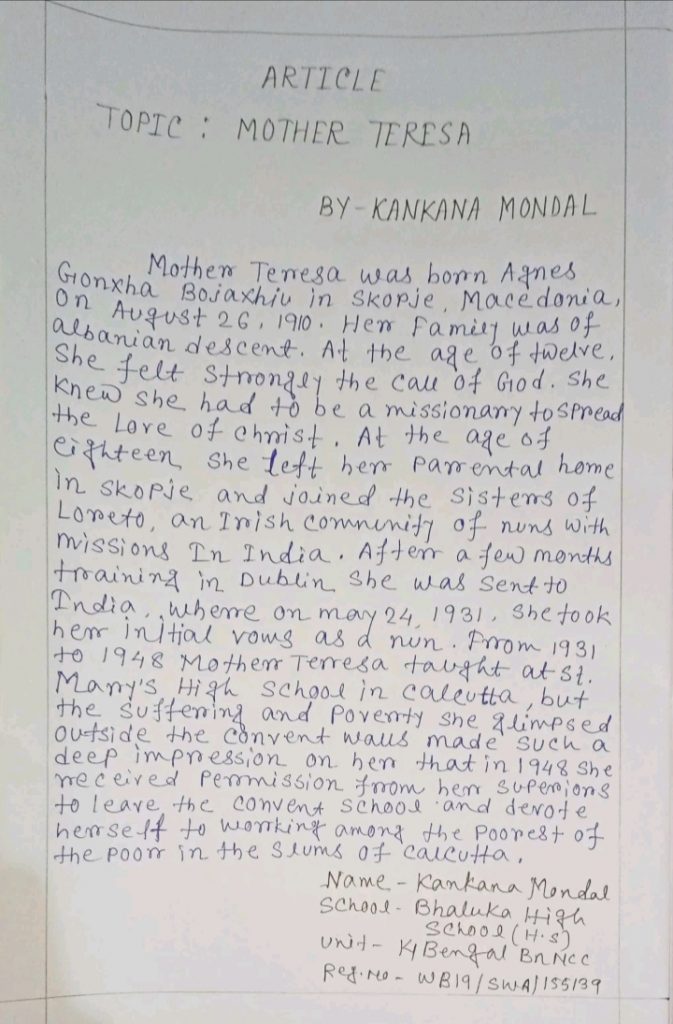 ARTICLE
TOPIC : MOTHER TERESA
BY - KANKANA MONDAL
Mother Teresa was born Agnes
Gonxha Bojaxhiu in Skopje, Macedonia,
On August 26, 1910. Her Family was of
albanian descent. At the age of twelve,
She felt Strongly the call of God. She
Knew She had to be a missionary to spread
the Love of Christ. At the age of
eighteen She left her Parental home
in Skopje and joined the Sisters of
Loreto, an Irish Community of nuns with
missions In India. After a few months
training in Dublin She was Sent to
India, where on may 24, 1931, She took
her initial vows as a nun. From 1931
to 1948 Mother Teresa taught at St.
Mary's High School in Calcutta, but
the Suffering and Poverty She glimpsed
outside the Convent walls made such a
deep impression on her that in 1948 She
received Permission from her Superiors
to leave the Convent School and devote
herself to working among the Poorest of
the poor in the Slums of Calcutta.
Name - Kankana Mondal
School - Bhaluka High
School (H.S)
Unit - Bengal Bn NCC
Reg. No - WB19/SWA/155139